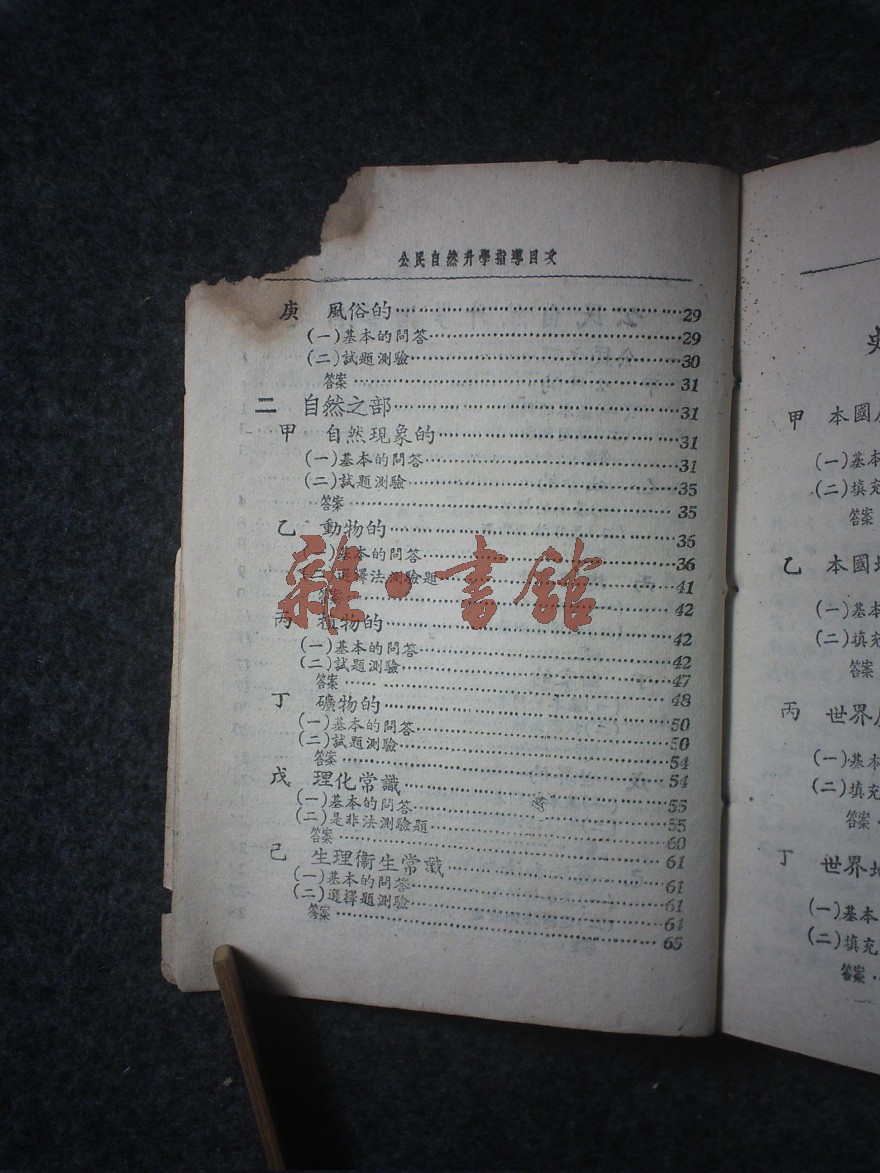 公民自然升學指導目次
庚 風俗的……29
(一)基本的問答……29
(二)試題測驗……30
答案……31
二 自然之部……31
甲 自然現象的……31
(一)基本的問答……31
(二)試題測驗……35
答案……35
乙 動物的……36
)基本的問答……36
(二)選擇法測驗題……41
答案……42
丙 植物的……42
(一)基本的問答……42
(二)試題測驗……47
答案……48
丁 礦物的……50
(一)基本的問答……50
(二)試題測驗……54
答案……54
戊 理化常識……55
(一)基本的問答……55
(二)是非法測驗題……60
答案……61
己 生理衞生常識……61
(一)基本的問答……61
(二)選擇題測驗……64
答案……65
雜·書館
甲 本國
(一)基本
(二)填充
答案
乙 本國地
(一)基本
(二)填充
答案
丙 世界
(一)基本
(二)填充
答案
丁 世界地
(一)基本
(二)填充
答案